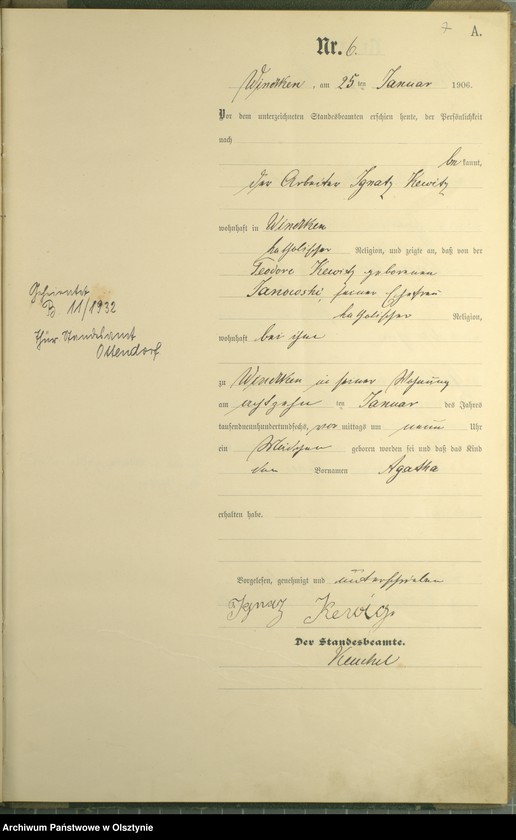 7 A.
Nr. 6.
Windtken, am 25 ten Januar 1906.
Vor dem unterzeichneten Standesbeamten erschien heute, der Persönlichkeit
nach
bekannt,
der Arbeiter Ignatz Kewitz
wohnhaft in Windtken
katholischer Religion, und zeigte an, daß von der
Teodore Kewitz geborenen
Janowski, seiner Ehefrau
katholischer Religion,
wohnhaft bei ihm
zu Windtken in seiner Wohnung
am achtzehn ten Januar des Jahres
tausendneunhundertundsechs, vor mittags um neun Uhr
ein Mädchen geboren worden sei und daß das Kind
den Vornamen Agatha
erhalten habe.
Vorgelesen, genehmigt und unterschrieben
Ignaz
Der Standesbeamte.
Geheiratet
B 11/1932
Standesamt
Ottendorf
Archiwum Państwowe w Olsztynie